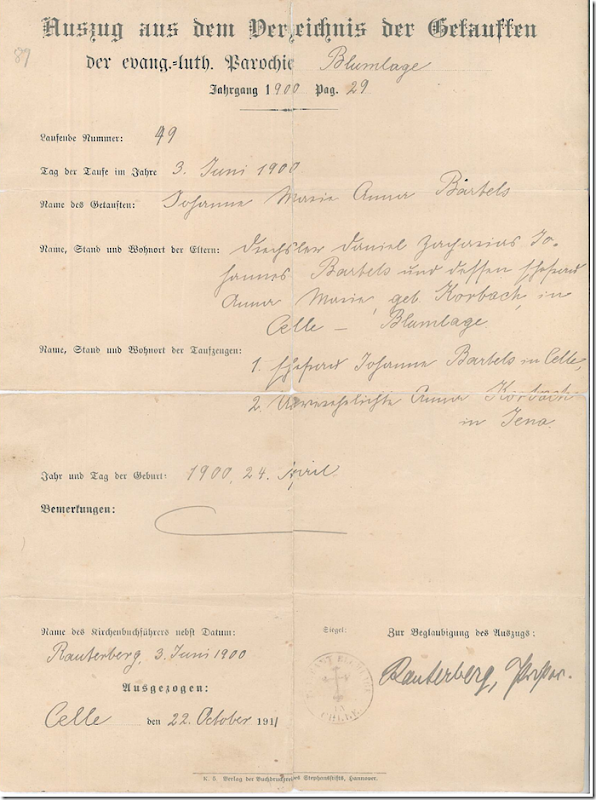 89
Auszug aus dem Verzeichnis der Getauften
der evang.-luth. Parochie Blumlage
Jahrgang 1900 Pag. 29
Laufende Nummer: 49
Tag der Taufe im Jahre 3. Juni 1900
Name des Getauften: Johanne Marie Anna Bartels
Name, Stand und Wohnort der Eltern: Drechsler Daniel Zacharias Jo-
hannes Bartels und dessen Ehefrau
Anna Marie, geb. Korbach, in
Celle – Blumlage.
Name, Stand und Wohnort der Taufzeugen:
1. Ehefrau Johanne Bartels in Celle,
2. Unverehelichte Anna Korbach
in Jena.
Jahr und Tag der Geburt: 1900, 24. April
Bemerkungen:
Name des Kirchenbuchführers nebst Datum:
Rauterberg, 3. Juni 1900
Ausgezogen:
Celle den 22. October 1911
Siegel:
IN
CELLE
Zur Beglaubigung des Auszugs:
Rauterberg, Pastor.
K. 3. Verlag der Buchdruckerei des Stephansstifts, Hannover.